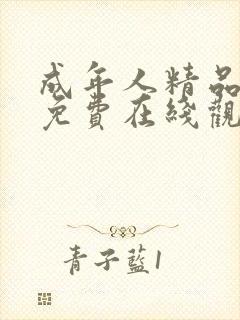 成年人精品
免費在綫觀
青子藍1